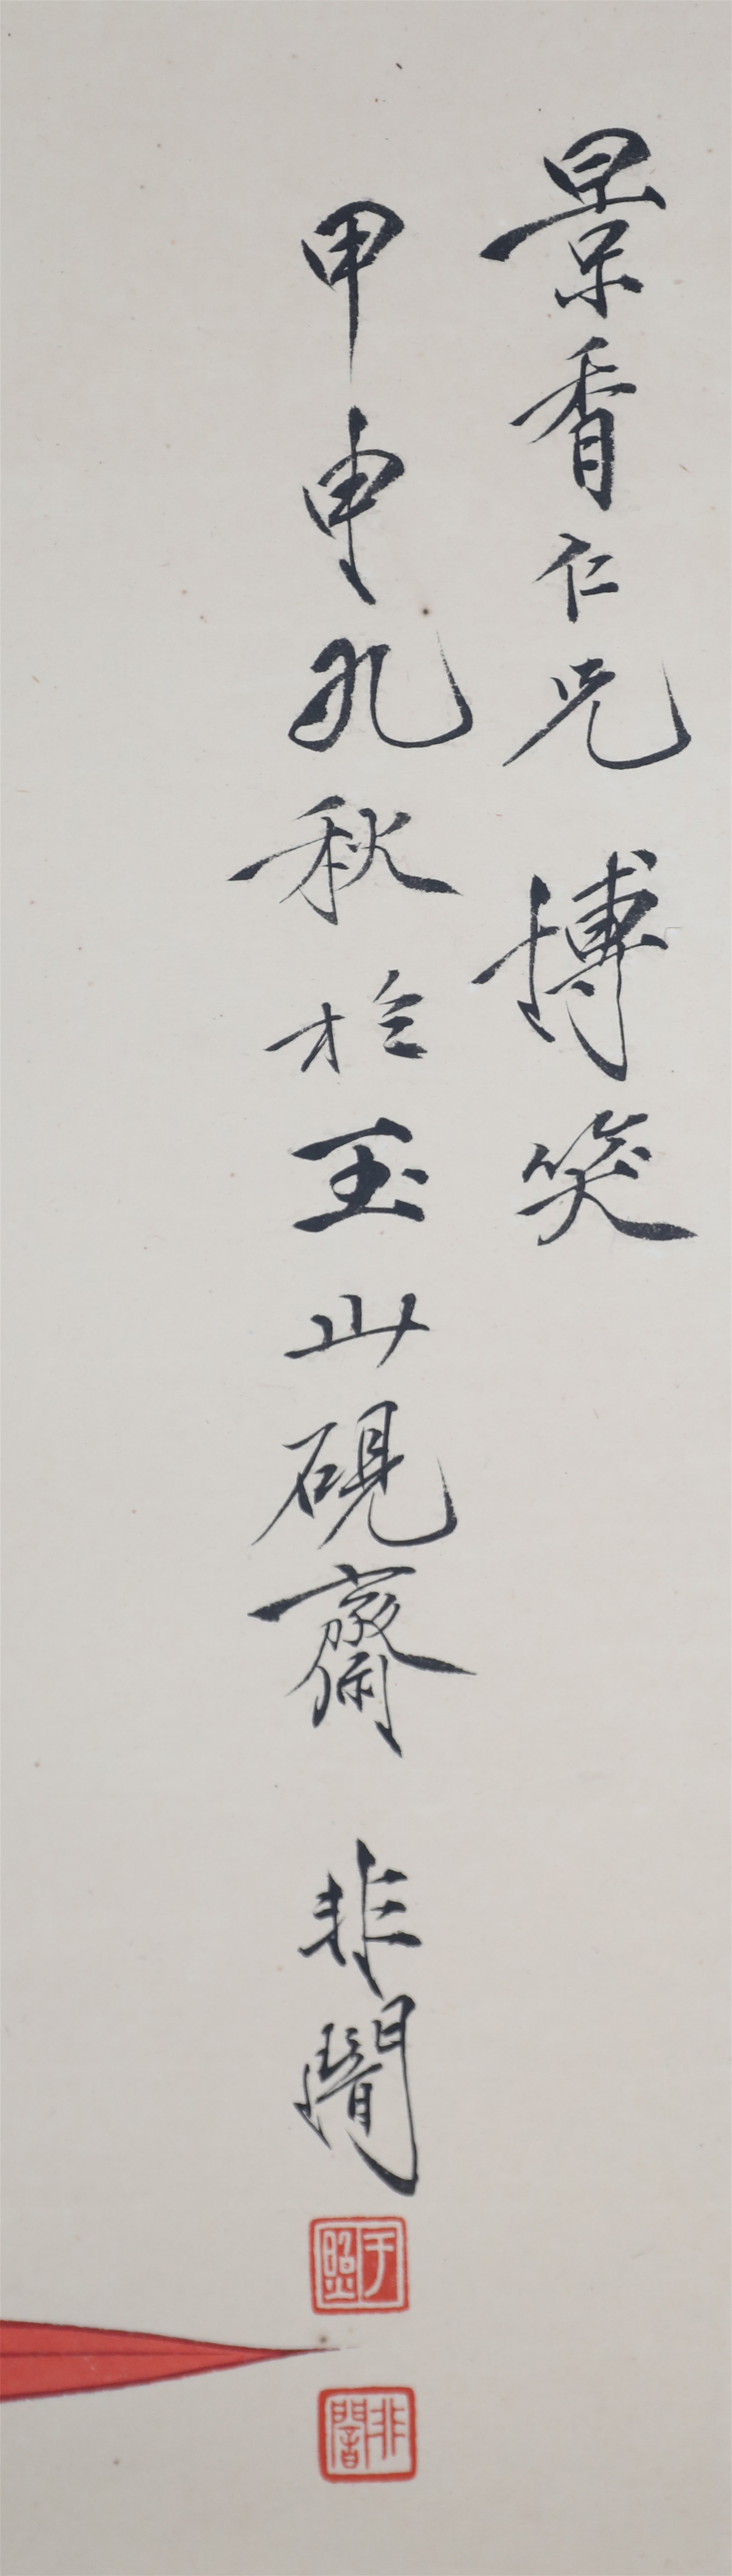 景香仁兄 博笑
甲申九秋於玉山硯齋 非闇
于照
非闇